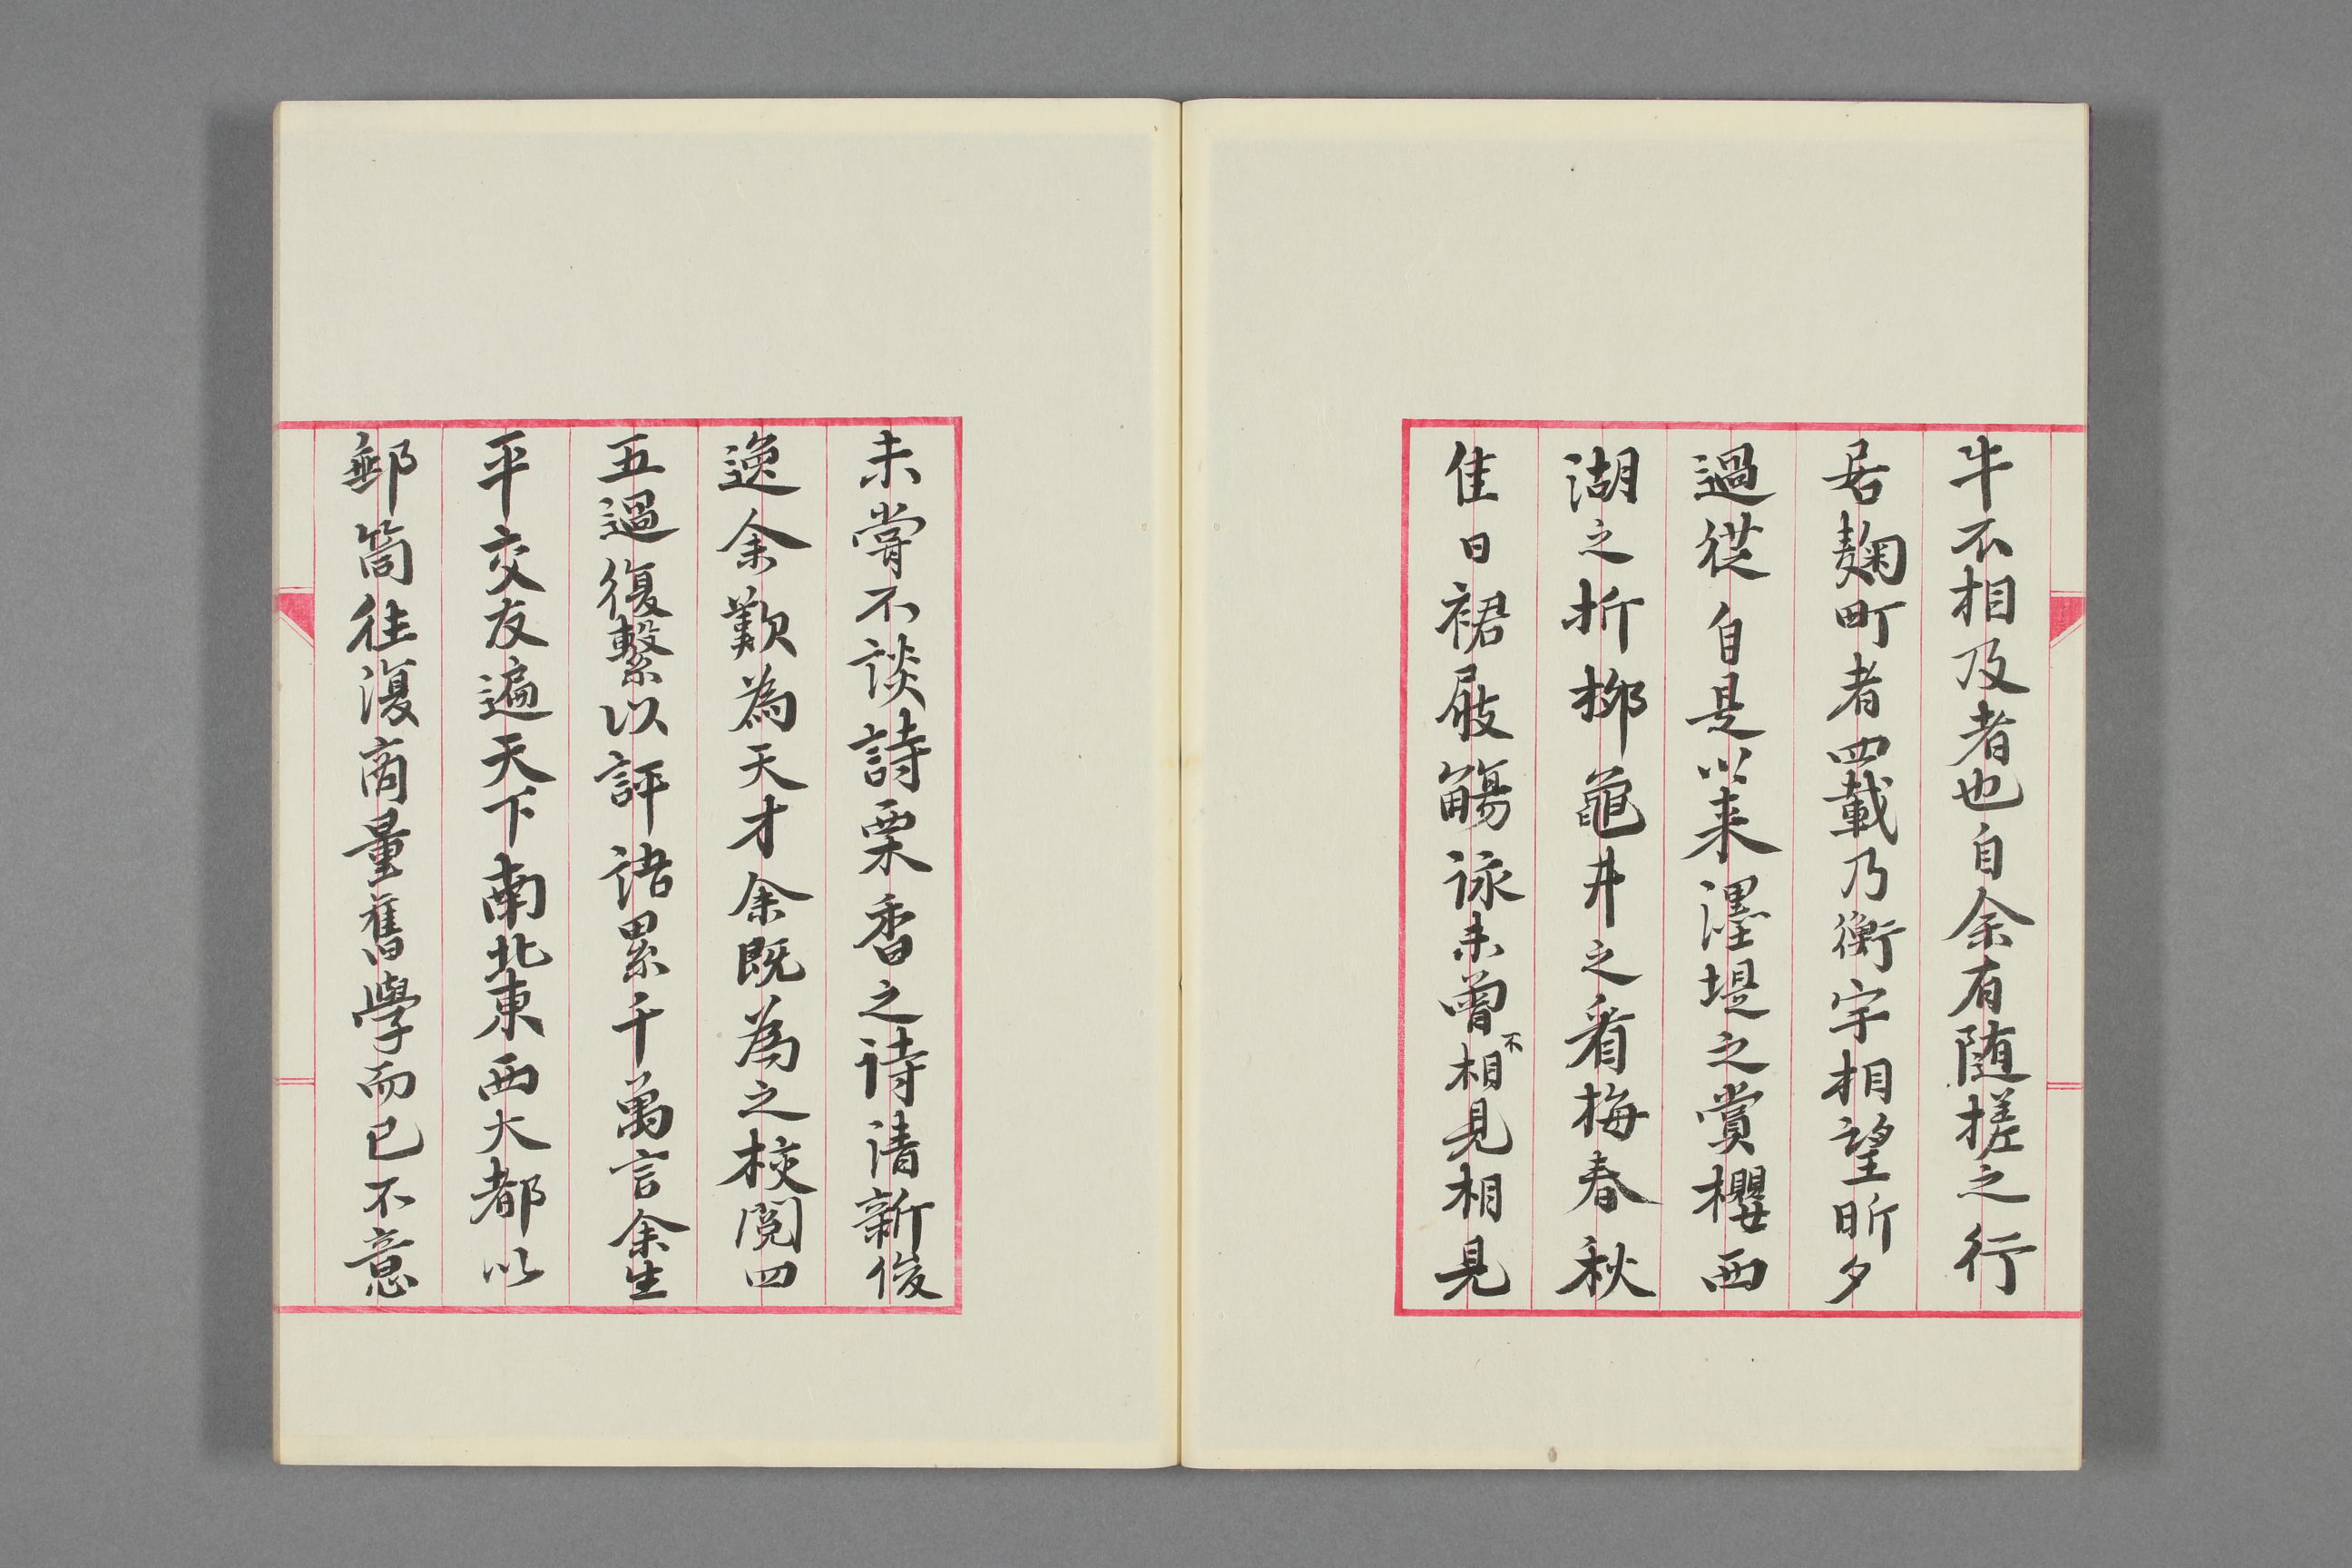 牛不相及者也自余有随槎之行
居麹町者四載乃衡宇相望昕夕
過従自是以来濹堤之賞櫻西
湖之折栁龜井之看梅春秋
佳日裙屐觴詠未曾不相見相見
未嘗不談詩栗香之詩清新俊
逸余歎為天才余既為之校閲四
五過復繫以評語累千萬言余生
平交友遍天下南北東西大都以
郵筒往復商量舊學而已不意